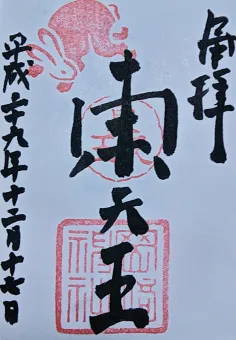 奉拝
東天王
岡崎
神社
平成二十九年十二月十七日